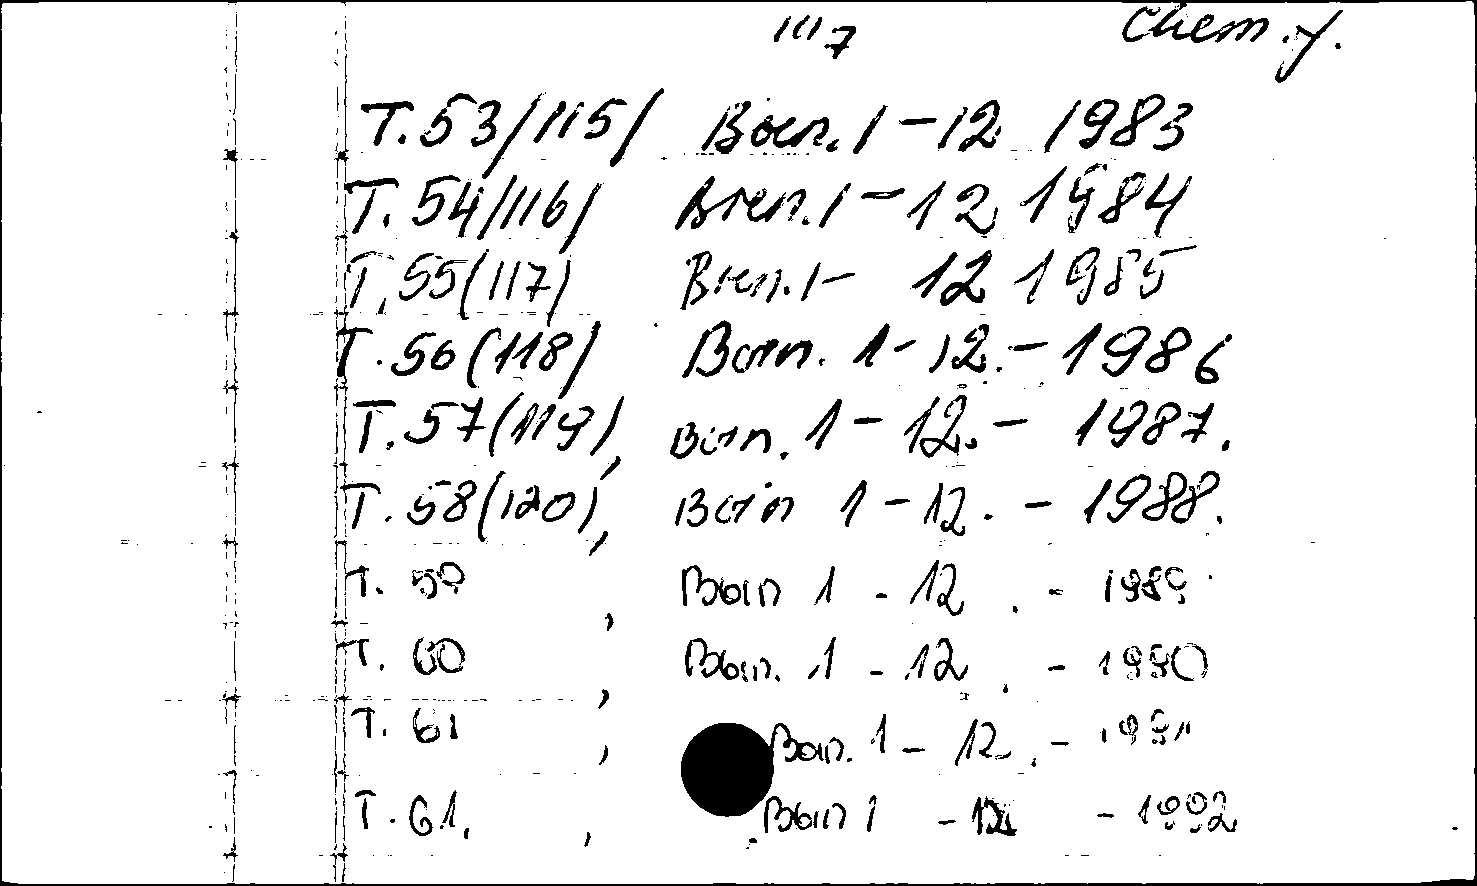 III 7 Chem. J.
T. 53 /115/ Вып. 1 - 12 1983
T. 54 /116/ Вып. 1 - 12 1984
T. 55 (117) Вып. 1 - 12 1985
T. 56 (118) Вып. 1 - 12. - 1986
T. 57 (119), Вып. 1 - 12. - 1987.
T. 58 (120), Вып 1 - 12. - 1988.
T. 59 , Вып 1 - 12 . - 1989
T. 60 , Вып. 1 - 12 . - 1990
T. 61 , Вып. 1 - 12 . - 1991
T. 61. , Вып 1 - 12 - 1992